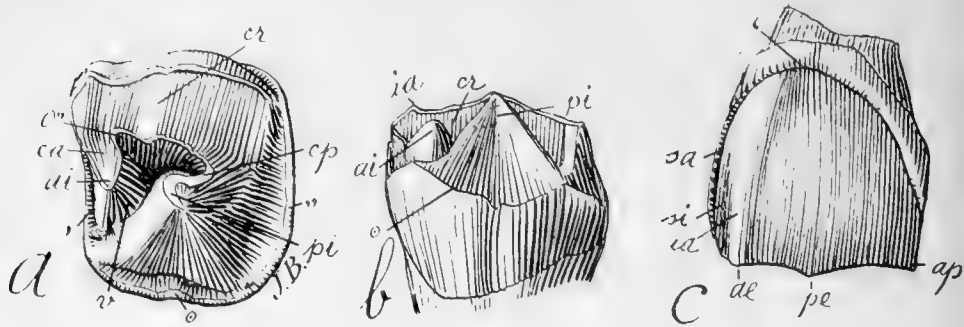 cr
c'''
ca
ai
'
v
o
cp
''
pi
J.B.
a
ia
cr
pi
ai
o
b
c
sa
si
ia
ae
pe
ap
C